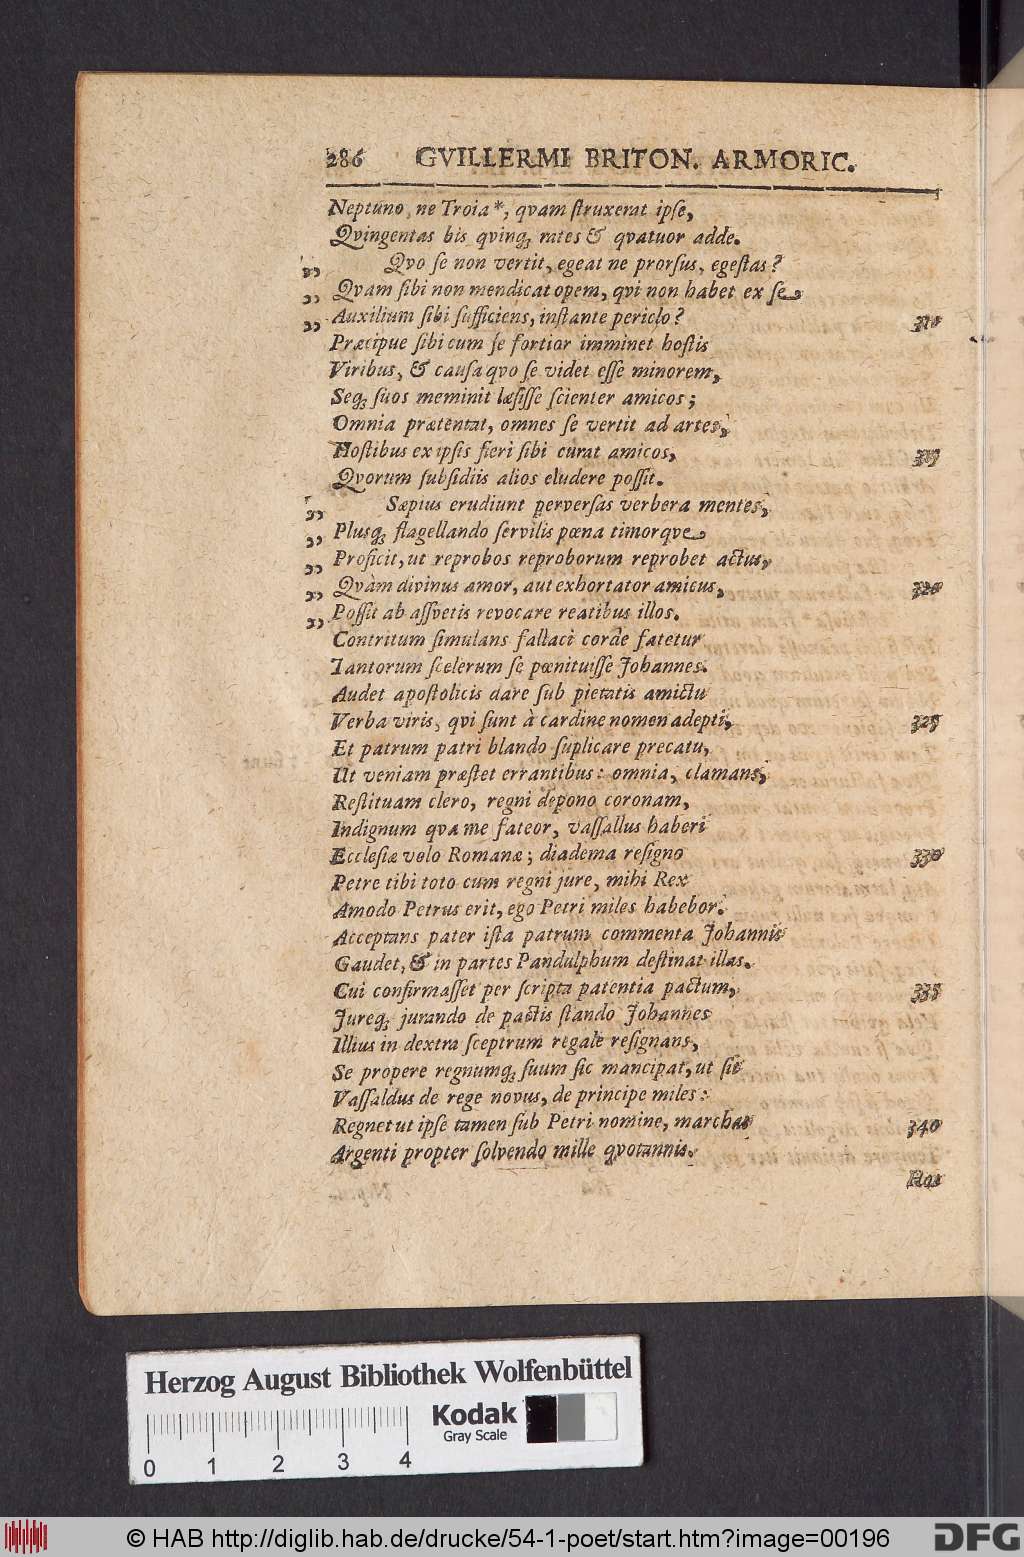 286 GVILLERMI BRITON. ARMORIC.
Neptuno, ne Troia*, qvam ſtruxerat ipſe,
Qvingentas bis qvinq; rates & qvatuor adde.
„ Qvo ſe non vertit, egeat ne prorſus, egeſtas?
„ Qvam ſibi non mendicat opem, qvi non habet ex ſe
„ Auxilium ſibi ſufficiens, inſtante periclo? 310
Præcipue ſibi cum ſe fortior imminet hoſtis
Viribus, & cauſa qvo ſe videt eſſe minorem,
Seq; ſuos meminit læſiſſe ſcienter amicos;
Omnia prætentat, omnes ſe vertit ad artes,
Hoſtibus ex ipſis fieri ſibi curat amicos, 315
Qvorum ſubſidiis alios eludere poſſit.
„ Sæpius erudiunt perverſas verbera mentes,
„ Plusq; flagellando ſervilis pœna timorqve
„ Proficit, ut reprobos reproborum reprobet actus,
„ Qvàm divinus amor, aut exhortator amicus, 320
„ Poſſit ab aſſvetis revocare reatibus illos.
Contritum ſimulans fallaci corde fatetur
Tantorum ſcelerum ſe pœnituiſſe Johannes.
Audet apoſtolicis dare ſub pietatis amictu
Verba viris, qvi ſunt à cardine nomen adepti, 325
Et patrum patri blando ſuplicare precatu,
Ut veniam præſtet errantibus: omnia, clamans,
Reſtituam clero, regni depono coronam,
Indignum qva me fateor, vaſſallus haberi
Eccleſiæ volo Romanæ; diadema reſigno 330
Petre tibi toto cum regni jure, mihi Rex
Amodo Petrus erit, ego Petri miles habebor.
Acceptans pater iſta patrum commenta Johannis
Gaudet, & in partes Pandulphum deſtinat illas.
Cui confirmaſſet per ſcripta patentia pactum, 335
Jureq; jurando de pactis ſtando Johannes
Illius in dextra ſceptrum regale reſignans,
Se propere regnumq; ſuum ſic mancipat, ut ſit
Vaſſaldus de rege novus, de principe miles:
Regnet ut ipſe tamen ſub Petri nomine, marchas 340
Argenti propter ſolvendo mille qvotannis.
Hos
Herzog August Bibliothek Wolfenbüttel
Kodak
Gray Scale
0 1 2 3 4
© HAB http://diglib.hab.de/drucke/54-1-poet/start.htm?image=00196
DFG